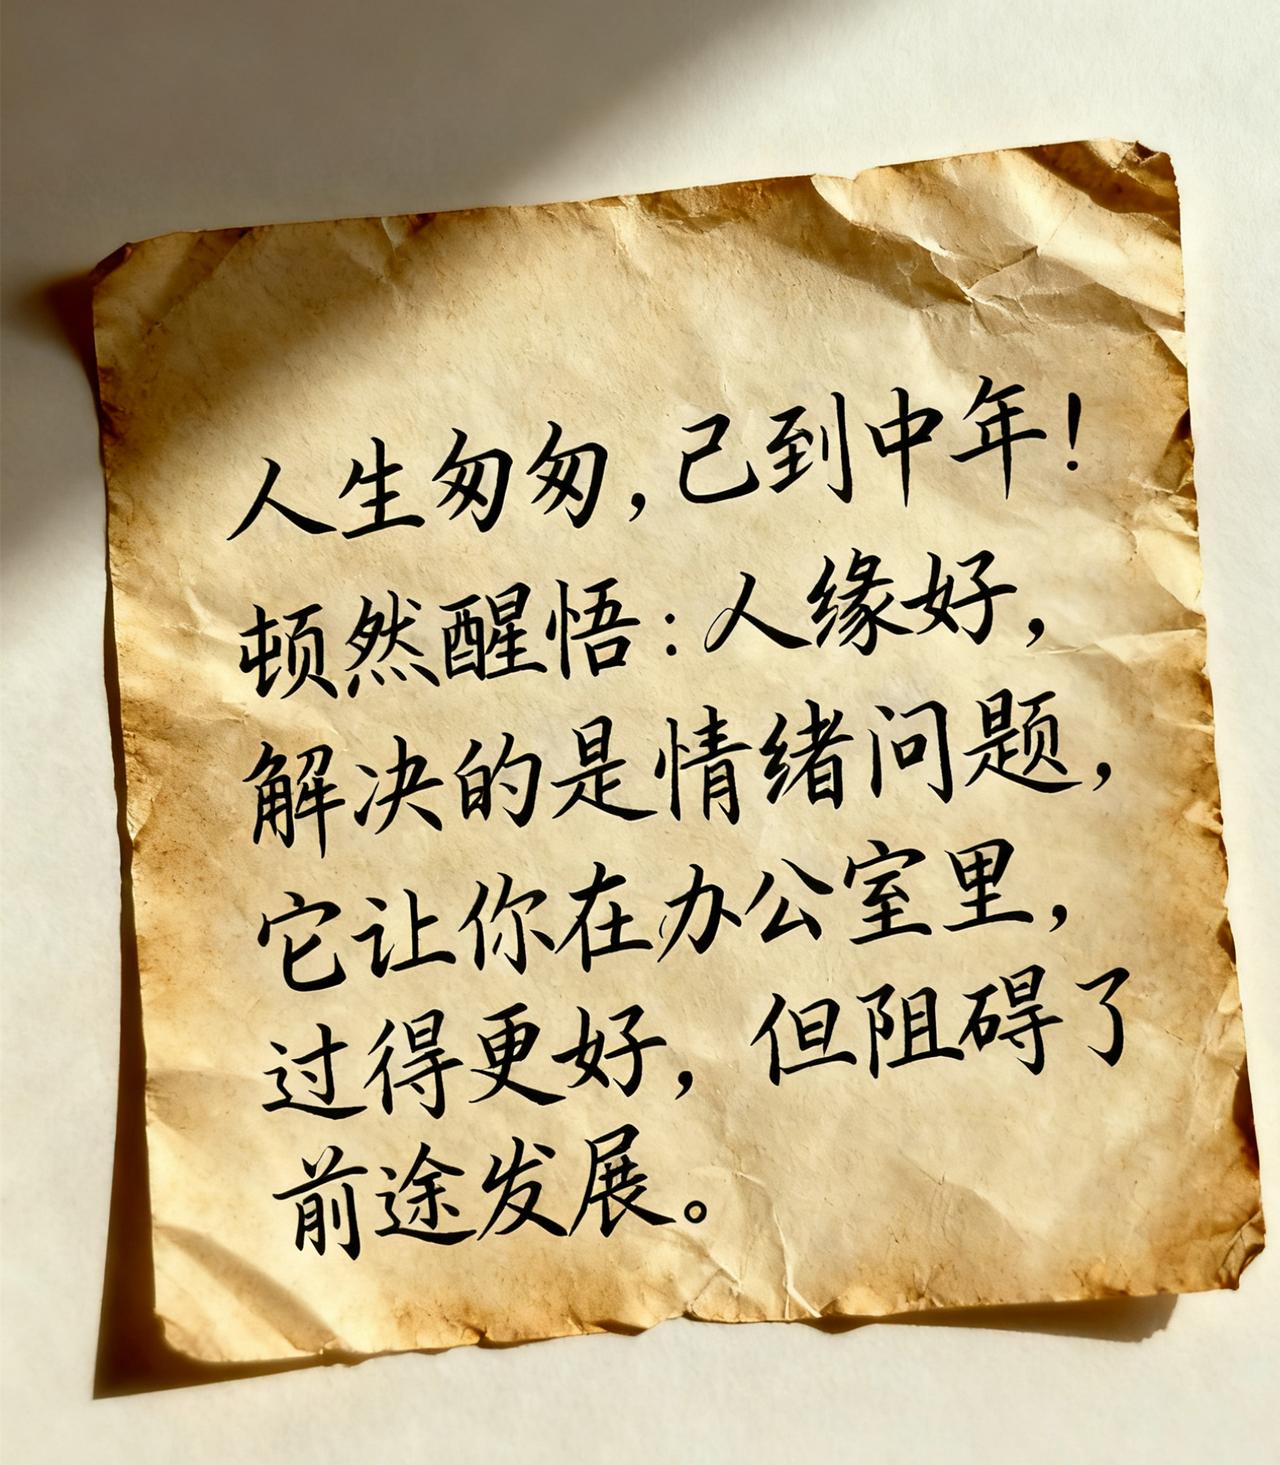 人生匆匆,己到中年!
顿然醒悟:人缘好,
解决的是情绪问题,
它让你在办公室里,
过得更好,但阻碍了
前途发展。